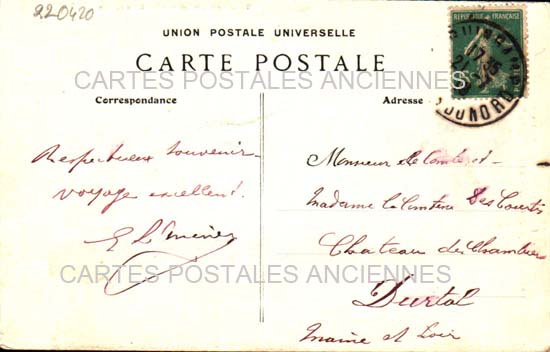 220420
UNION POSTALE UNIVERSELLE
CARTE POSTALE
Correspondance
Adresse
REPUBLIQUE FRANÇAISE
DU NORD
CARTES POSTALES ANCIENNES
Respectueux souvenir
voyage excellent.
Monsieur le Comte et
Madame la Comtesse des Courtis
Chateau des Chambiers
Durtal
Maine et Loir
CARTES POSTALES ANCIENNES